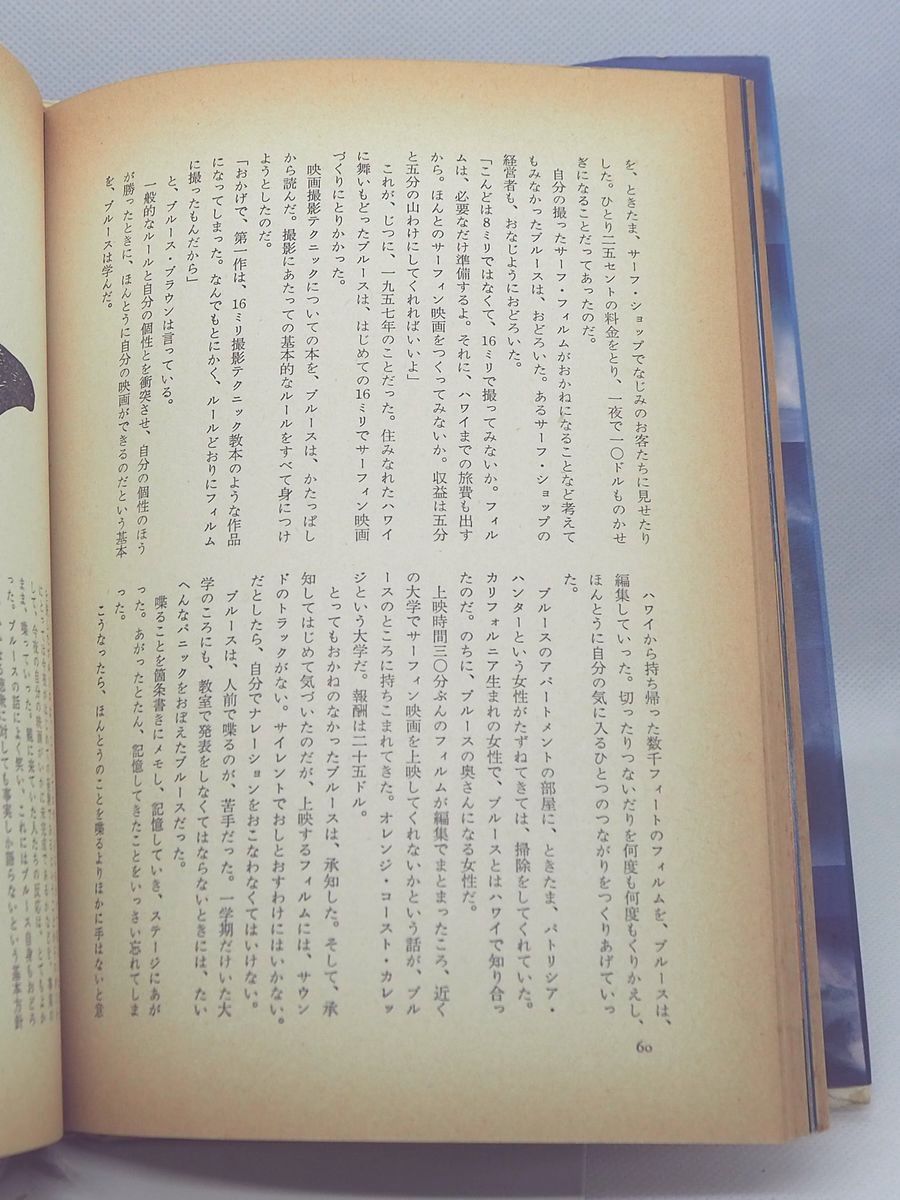 を、ときたま、サーフ・ショップでなじみのお客たちに見せたり
した。ひとり二五セントの料金をとり、一夜で一〇ドルものかせ
ぎになることだってあったのだ。
自分の撮ったサーフ・フィルムがおかねになることなど考えて
もみなかったブルースは、おどろいた。あるサーフ・ショップの
経営者も、おなじようにおどろいた。
「こんどは8ミリではなくて、16ミリで撮ってみないか。フィル
ムは、必要なだけ準備するよ。それに、ハワイまでの旅費も出す
から。ほんとのサーフィン映画をつくってみないか。収益は五分
と五分の山わけにしてくれればいいよ」
これが、じつに、一九五七年のことだった。住みなれたハワイ
に舞いもどったブルースは、はじめての16ミリでサーフィン映画
づくりにとりかかった。
映画撮影テクニックについての本を、ブルースは、かたっぱし
から読んだ。撮影にあたっての基本的なルールをすべて身につけ
ようとしたのだ。
「おかげで、第一作は、16ミリ撮影テクニック教本のような作品
になってしまった。なんでもとにかく、ルールどおりにフィルム
に撮ったもんだから」
と、ブルース・ブラウンは言っている。
一般的なルールと自分の個性とを衝突させ、自分の個性のほう
が勝ったときに、ほんとうに自分の映画ができるのだという基本
を、ブルースは学んだ。
ハワイから持ち帰った数千フィートのフィルムを、ブルースは、
編集していった。切ったりつないだりを何度も何度もくりかえし、
ほんとうに自分の気に入るひとつのつながりをつくりあげていっ
た。
ブルースのアパートメントの部屋に、ときたま、パトリシア・
ハンターという女性がたずねてきては、掃除をしてくれていた。
カリフォルニア生まれの女性で、ブルースとはハワイで知り合っ
たのだ。のちに、ブルースの奥さんになる女性だ。
上映時間三〇分ぶんのフィルムが編集でまとまったころ、近く
の大学でサーフィン映画を上映してくれないかという話が、ブル
ースのところに持ちこまれてきた。オレンジ・コースト・カレッ
ジという大学だ。報酬は二十五ドル。
とってもおかねのなかったブルースは、承知した。そして、承
知してはじめて気づいたのだが、上映するフィルムには、サウン
ドのトラックがない。サイレントでおしとおすわけにはいかない。
だとしたら、自分でナレーションをおこなわなくてはいけない。
ブルースは、人前で喋るのが、苦手だった。一学期だけいた大
学のころにも、教室で発表をしなくてはならないときには、たい
へんなパニックをおぼえたブルースだった。
喋ることを箇条書きにメモし、記憶していき、ステージにあが
った。あがったとたん、記憶してきたことをいっさい忘れてしま
った。
こうなったら、ほんとうのことを喋るよりほかに手はないと意
60
して、今夜の自分の映画がいかに未完成
まま、喋っていった。観に来ていた人たちの反応は、とてもよか
った。ブルースの話によく笑い、これにはブルース自身もおどろ
に対しても事実しか語らないという基本方針